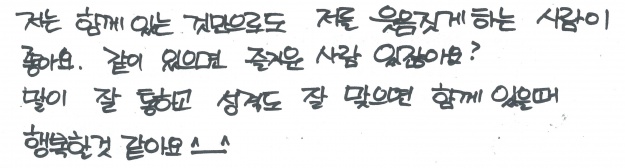 저는 함께 있는 것만으로도 저를 웃음짓게 하는 사람이
좋아요. 같이 있으면 즐거운 사람 있잖아요?
말이 잘 통하고 성격도 잘 맞으면 함께 있을때
행복할것 같아요 ^__^